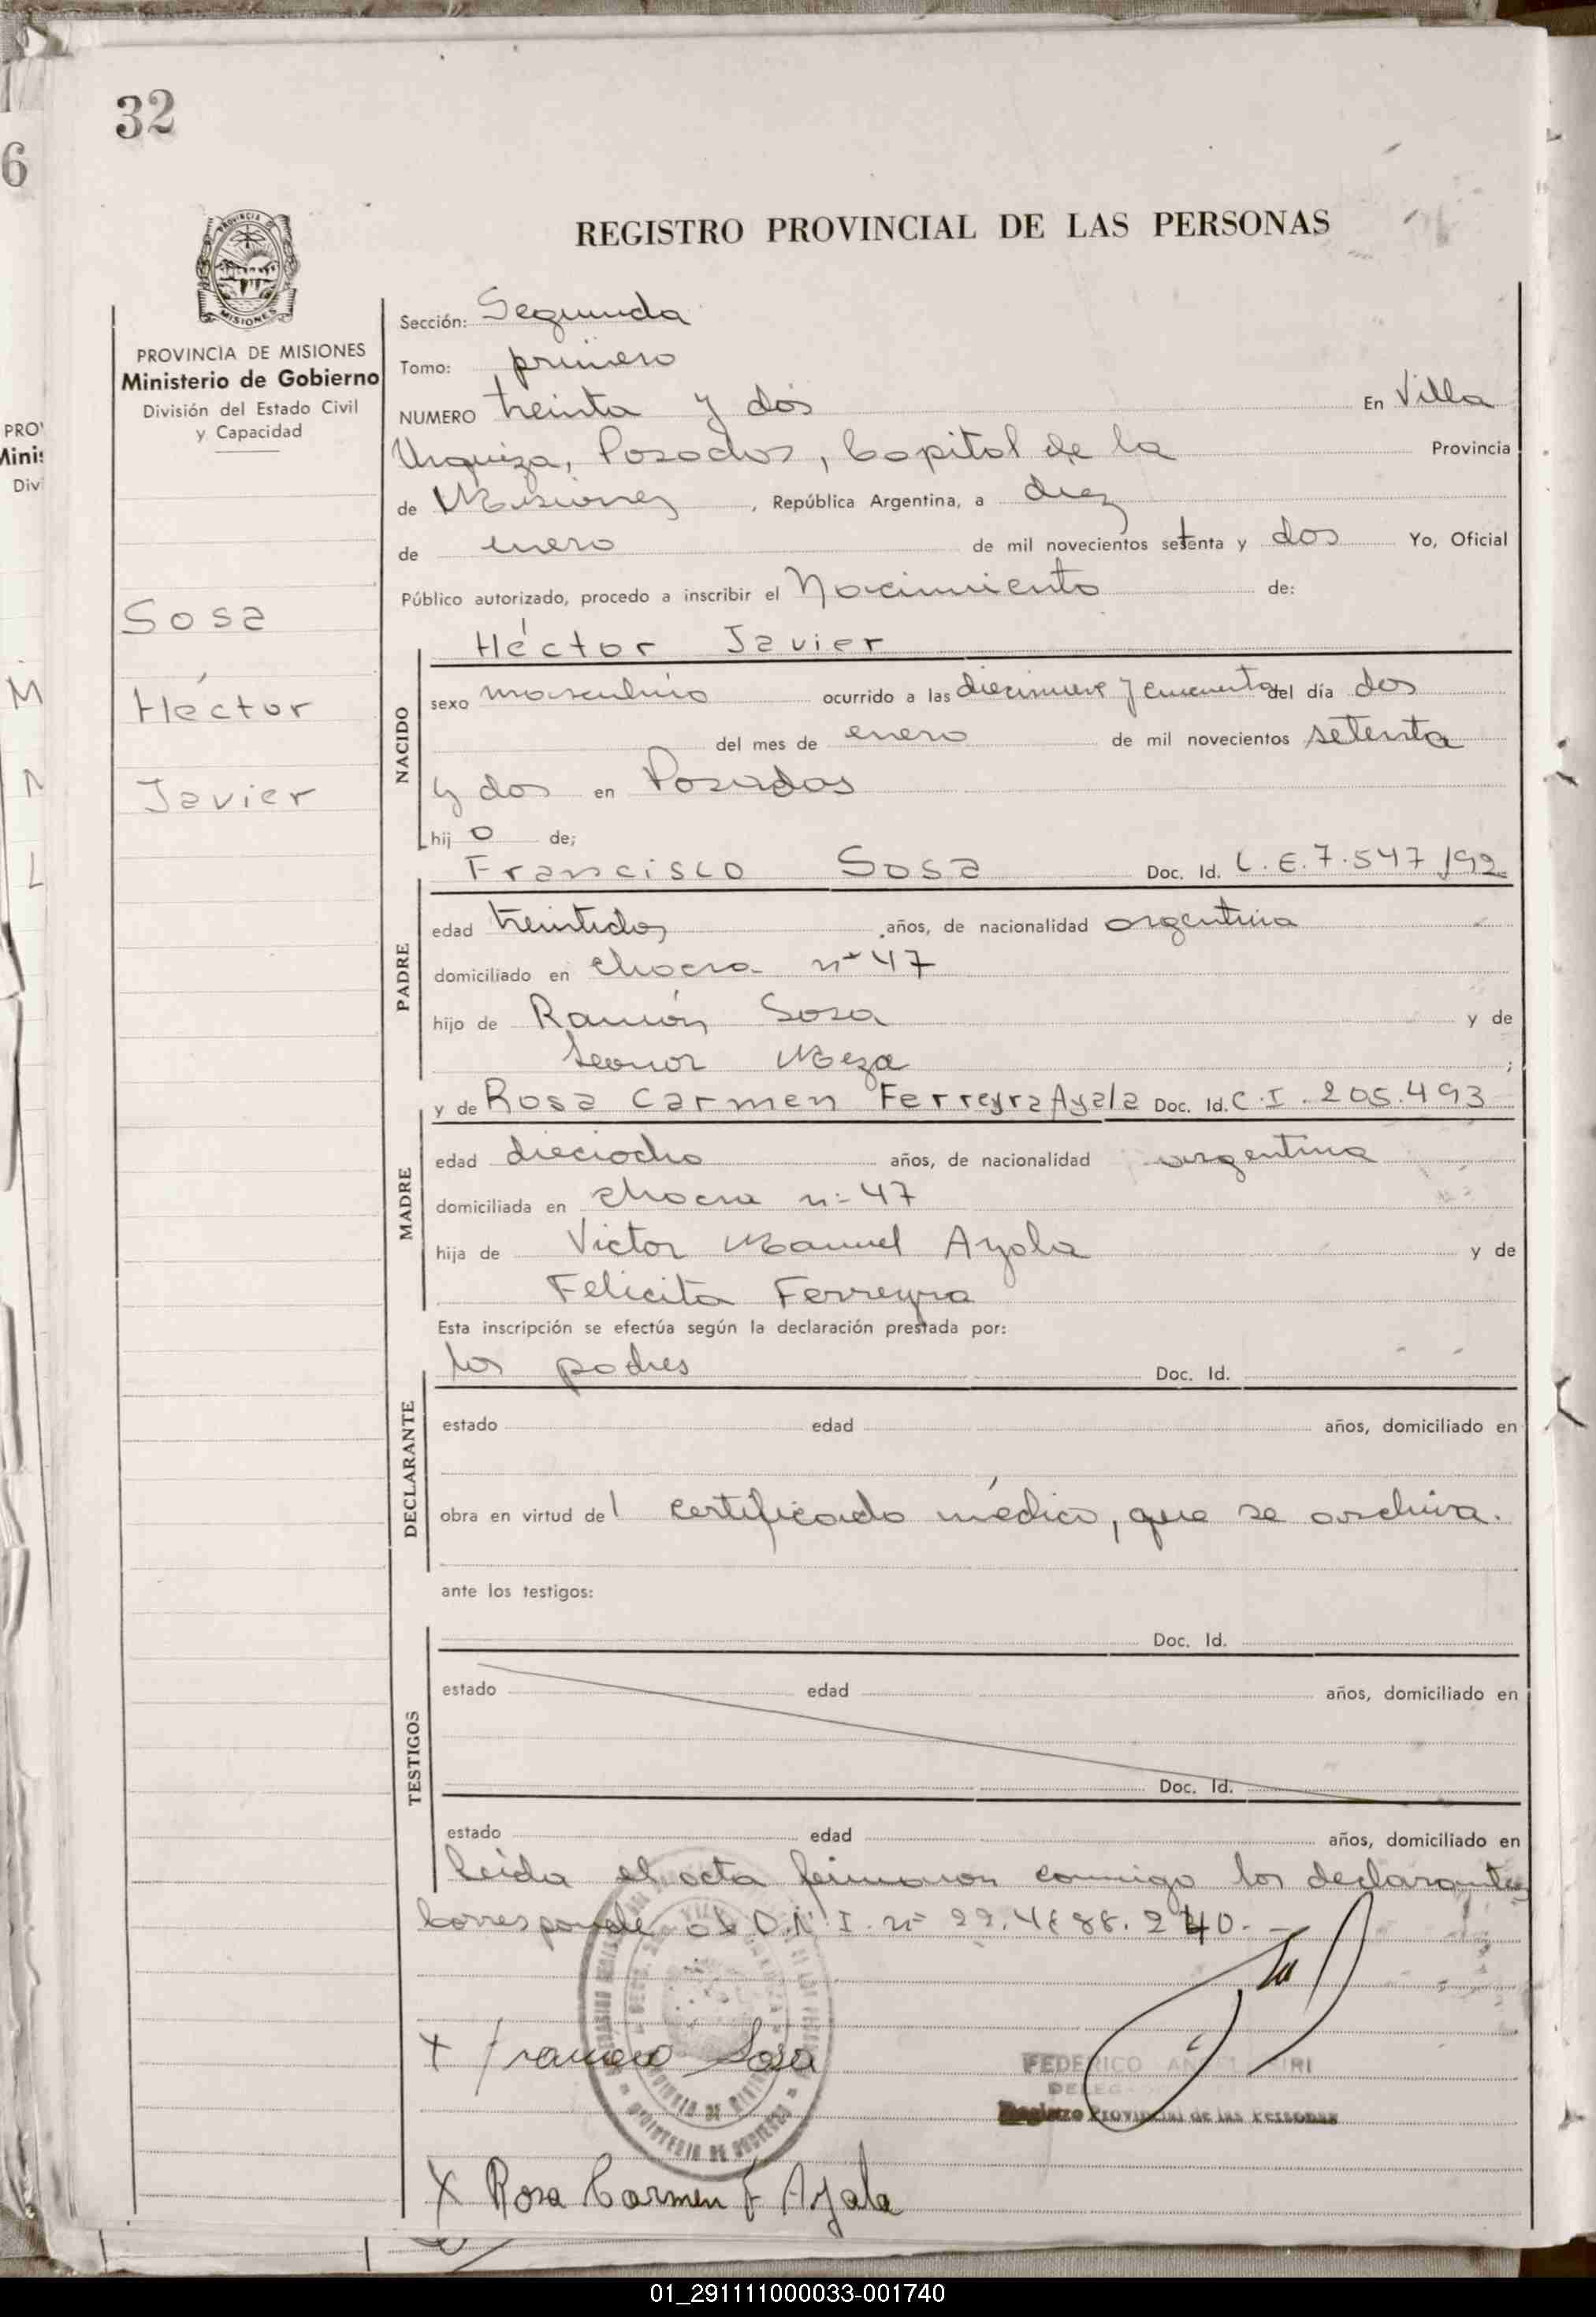 32
6
REGISTRO PROVINCIAL DE LAS PERSONAS
PROVINCIA
MISIONES
PROVINCIA DE MISIONES
Ministerio de Gobierno
División del Estado Civil
y Capacidad
Sosa
Héctor
Javier
Sección: Segunda
Tomo: primero
NUMERO treinta y dos En Villa
Urquiza, Posadas, Capital de la Provincia
de Misiones, República Argentina, a diez
de enero de mil novecientos setenta y dos Yo, Oficial
Público autorizado, procedo a inscribir el Nacimiento de:
Héctor Javier
NACIDO
sexo masculino ocurrido a las diecinueve y cincuenta del día dos
del mes de enero de mil novecientos setenta
y dos en Posadas
hijo de;
Francisco Sosa Doc. Id. L.E. 7.547.192
PADRE
edad treintidos años, de nacionalidad argentina
domiciliado en chacra nº 47
hijo de Ramón Sosa y de
Leonor Meza ;
y de Rosa Carmen Ferreyra Ayala Doc. Id. C.I. 205.493
MADRE
edad dieciocho años, de nacionalidad argentina
domiciliada en chacra nº 47
hija de Victor Manuel Ayala y de
Felicita Ferreyra
Esta inscripción se efectúa según la declaración prestada por:
los padres Doc. Id.
DECLARANTE
estado edad años, domiciliado en
obra en virtud del certificado médico, que se archiva.
ante los testigos:
Doc. Id.
TESTIGOS
estado edad años, domiciliado en
Doc. Id.
estado edad años, domiciliado en
Leida el acta firmaron conmigo los declarantes
Corresponde al D.N.I. nº
x Francisco Sosa
FEDERICO
Registro Provincial de las Personas
x Rosa Carmen F Ayala
01_291111000033-001740